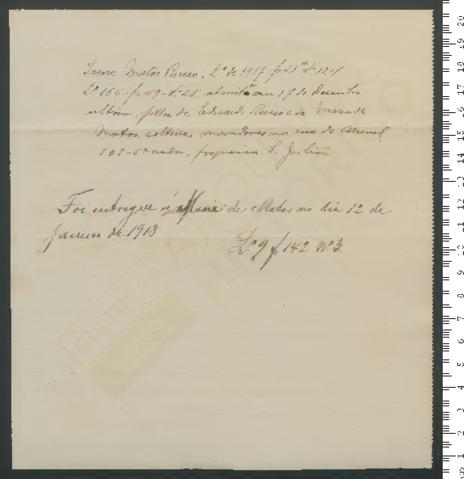 Matos Russo, Lº de 1917 fs 28
Lº 164 fs 49 Nº 28, admittido em 17 de Dezembro
ultimo, filho de Eduardo Russo e de Maria de
Matos, solteira, moradores na rua do Arsenal,
108-5º andar, freguezia S. Julião
Foi entregue á Maria de Matos no dia 12 de
Janeiro de 1918
Lº 9 f 142 nº 3